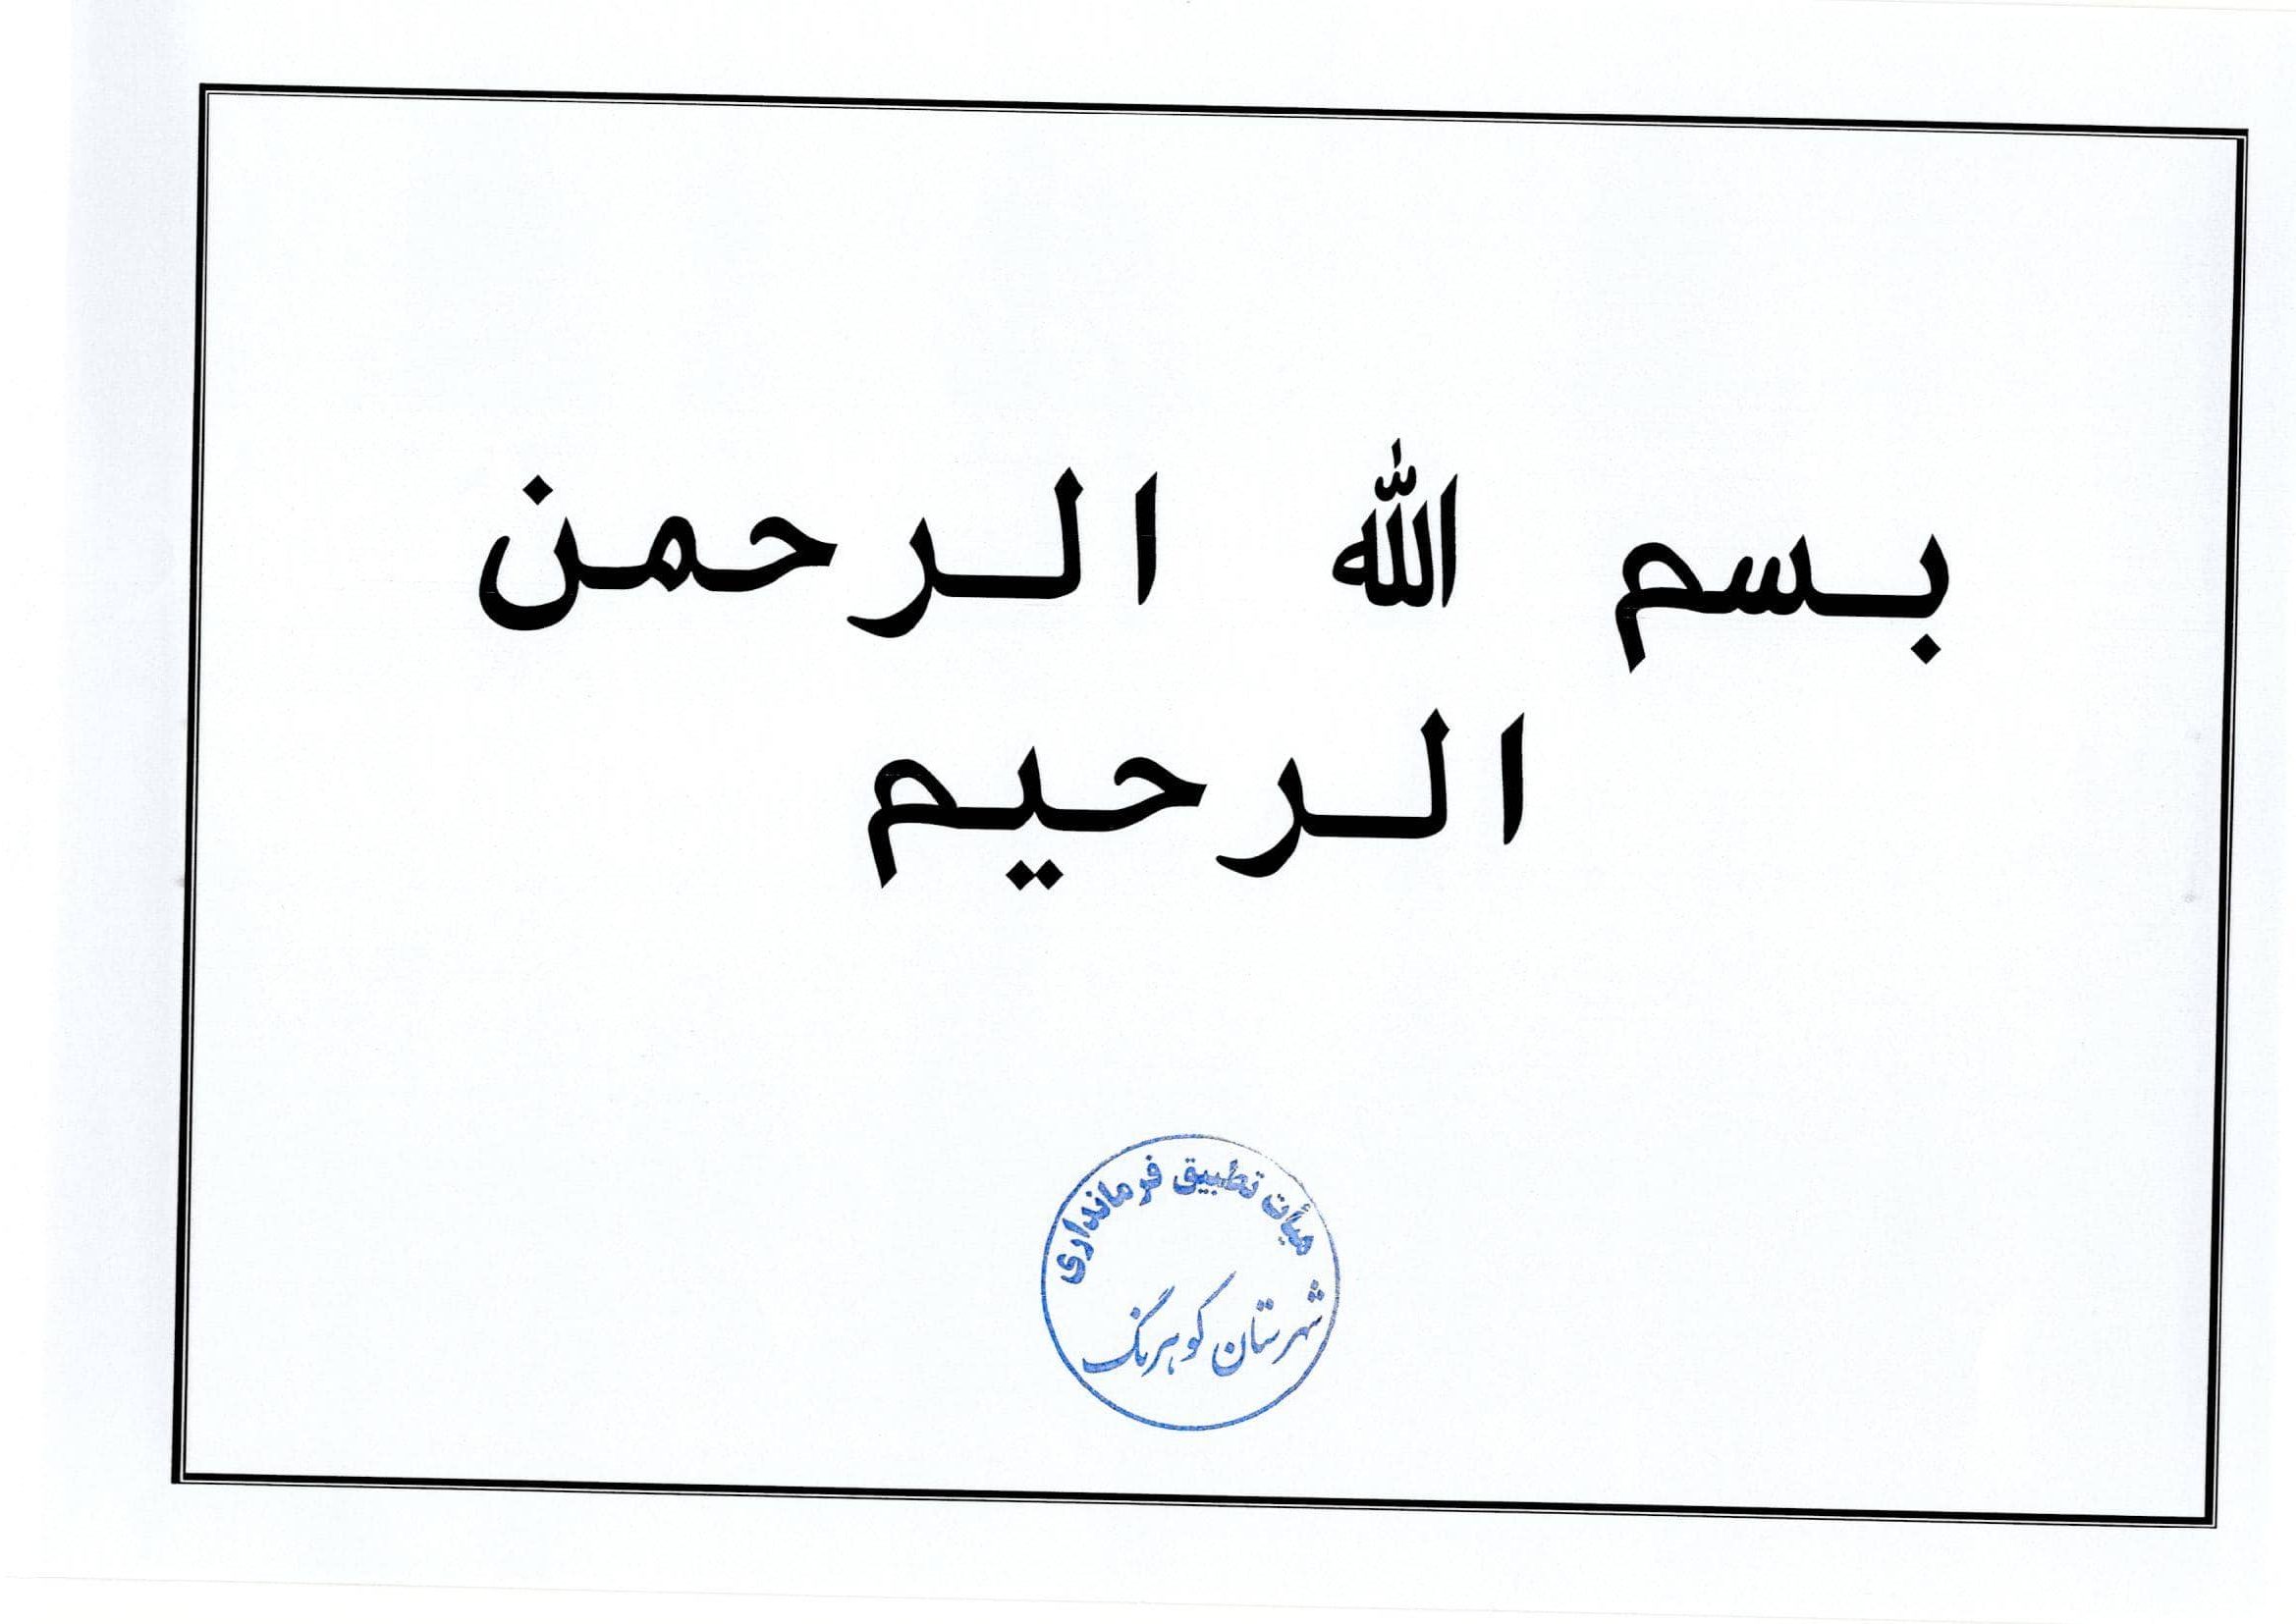 بسم الله الرحمن
الرحیم
هیأت تطبیق فرمانداری
شهرستان کوهرنگ